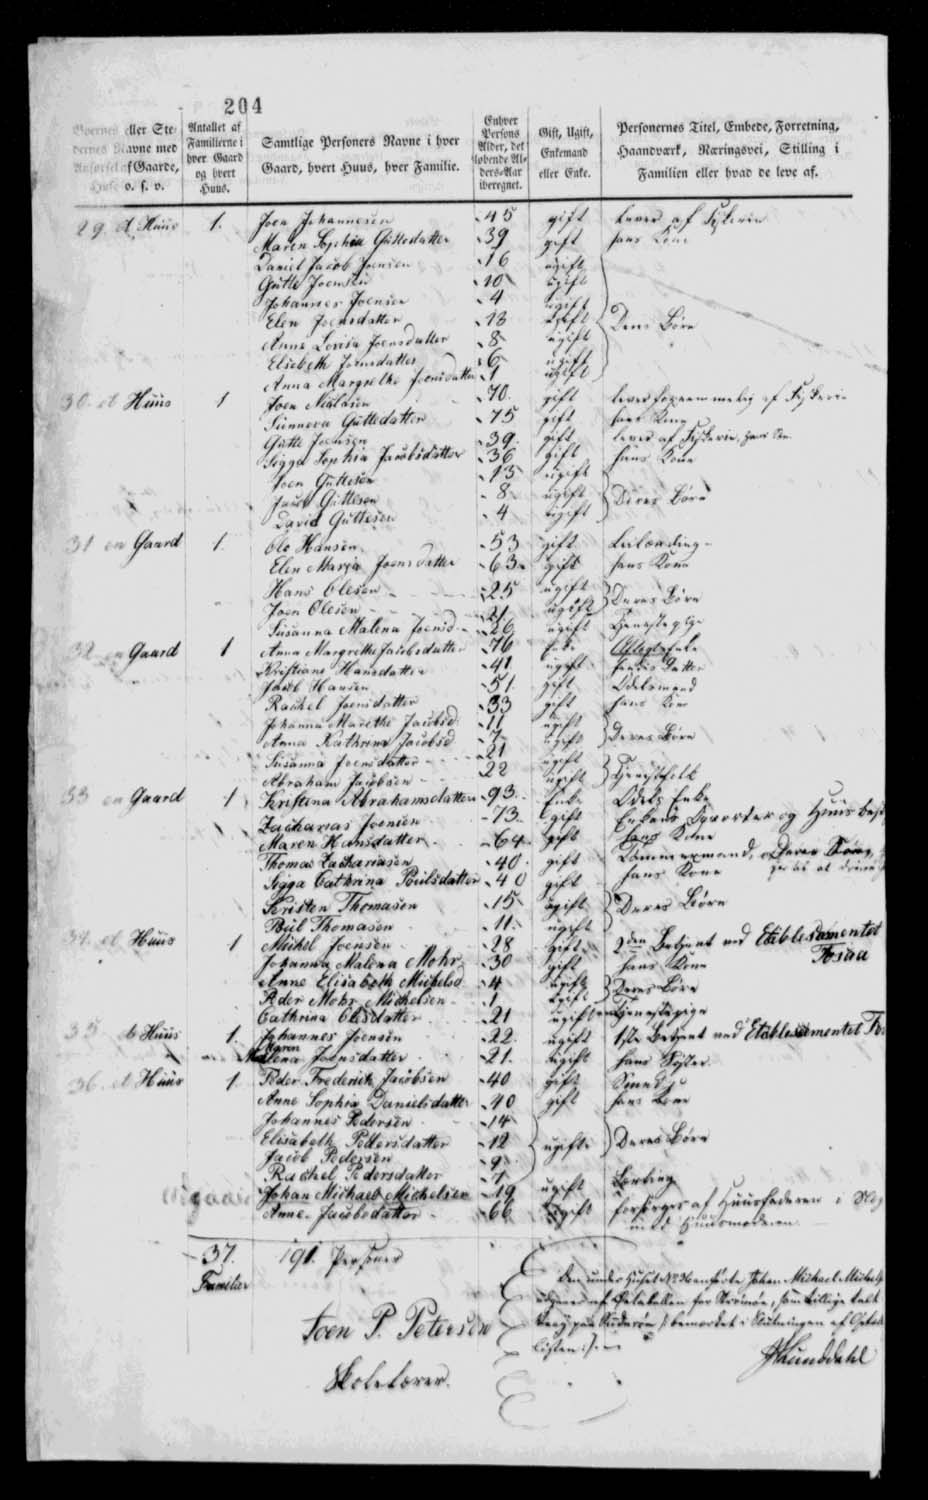 204
Boernes eller Stedernes Navne med Antallet af Gaarde, Huse o. s. v.
Antallet af Familierne i hver Gaard og hvert Huus.
Samtlige Personers Navne i hver Gaard, hvert Huus, hver Familie.
Enhver Persons Alder, det løbende Alders-Aar iberegnet.
Gift, Ugift, Enkemand eller Enke.
Personernes Titel, Embede, Forretning, Haandværk, Næringsvei, Stilling i Familien eller hvad de leve af.
29. et Huus 1. Joen Johannesen 45 gift lever af Fiskerie
Maren Sophia Guttesdatter 39 gift hans Kone
Daniel Jacob Joensen 16 ugift
Gutte Joensen 10 ugift
Johannes Joensen 4 ugift
Elen Joensdatter 13 ugift Deres Børn
Anne Lovisa Joensdatter 8 ugift
Elsebeth Joensdatter 6 ugift
Anna Margrethe Joensdatter 1 ugift
30. et Huus 1 Joen 70 gift lever af Fiskerie
Sunneva Guttesdatter 75 gift hans Kone
Gutte Joensen 39 gift lever af Fiskerie, hans Søn
Sigga Sophia Jacobsdatter 36 gift hans Kone
Joen Guttesen 13 ugift
Jacob Guttesen 8 ugift Deres Børn
David Guttesen 4 ugift
31 en Gaard 1. Ole Hansen 53 gift
Elen Maria Joensdatter 63 gift hans Kone
Hans Olesen 25 ugift Deres Børn
Joen Olesen 21 ugift
Susanna Malena Joensd. 26 ugift Tjenestepige
32 en Gaard 1 Anna Margrethe Jacobsdatter 76 Enke Aftægtsenke
Kristiane Hansdatter 41 ugift hendes Datter
Jacob Hansen 51 gift Odelsmand
Rachel Joensdatter 33 gift hans Kone
Johanna Marethe Jacobsd. 11 ugift
Anna Kathrina Jacobsd 7 ugift Deres Børn
Susanna Joensdatter 21 ugift
Abraham Jacobsen 22 ugift Tjenestfolk
33 en Gaard 1 Kristina Abrahamsdatter 93 Enke Odels Enke
Zacharias Joensen 73 gift Enkens og Huusbest
Maren Hansdatter 64 gift hans Kone
Thomas Zachariasen 40 gift Tømmermand, Deres Søn,
Sigga Cathrina Poulsdatter 40 gift hans Kone
Kristen Thomasen 15 ugift Deres Børn
Poul Thomasen 11 ugift
34. et Huus 1 Michel Joensen 28 gift 2den Betjent ved Etablissementet
Johanna Malena Mohr 30 gift hans Kone
Anne Elisabeth Michelsd 4 ugift Deres Børn
Peder Mohr Michelsen 1 ugift
Cathrina Olesdatter 21 ugift Tjenestepige
35 et Huus 1. Johannes Joensen 22 ugift 1ste Betjent ved Etablissementet
Maren
Malena Joensdatter 21 ugift hans Syster
36. et Huus 1 Peder Frederich Jacobsen 40 gift Smed
Anne Sophia Danielsdatter 40 gift hans Kone
Johannes Pedersen 14
Elisabeth Pedersdatter 12 ugifte Deres Børn
Jacob Pedersen 9
Rachel Pedersdatter 7
Johan Michael Michelsen 19 ugift Lærling
Anne Jacobsdatter 66 ugift forsørges af Huusfaderen i
med Huusmoderen
37. 191. Personer
Familier
Den under Huset No. 36 anførte Johan Michael
Joen P. Petersen
Skolelærer.
Listen